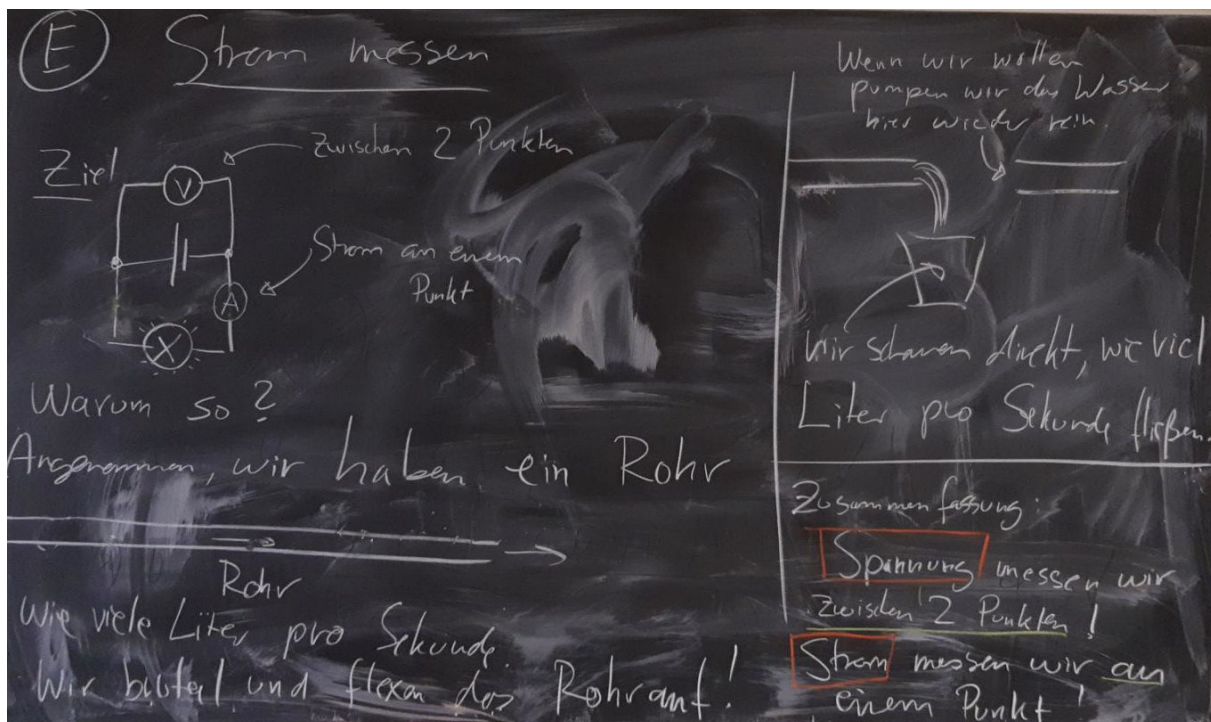 E Strom messen
Ziel
V
zwischen 2 Punkten
Strom an einem
Punkt
A
Warum so?
Angenommen, wir haben ein Rohr
Rohr
Wie viele Liter pro Sekunde.
Wir und flexen das Rohr auf!
Wenn wir wollen
pumpen wir das Wasser
hier wieder rein.
Wir schauen direkt, wie viel
Liter pro Sekunde fließen.
Zusammenfassung:
Spannung messen wir
zwischen 2 Punkten!
Strom messen wir an
einem Punkt!